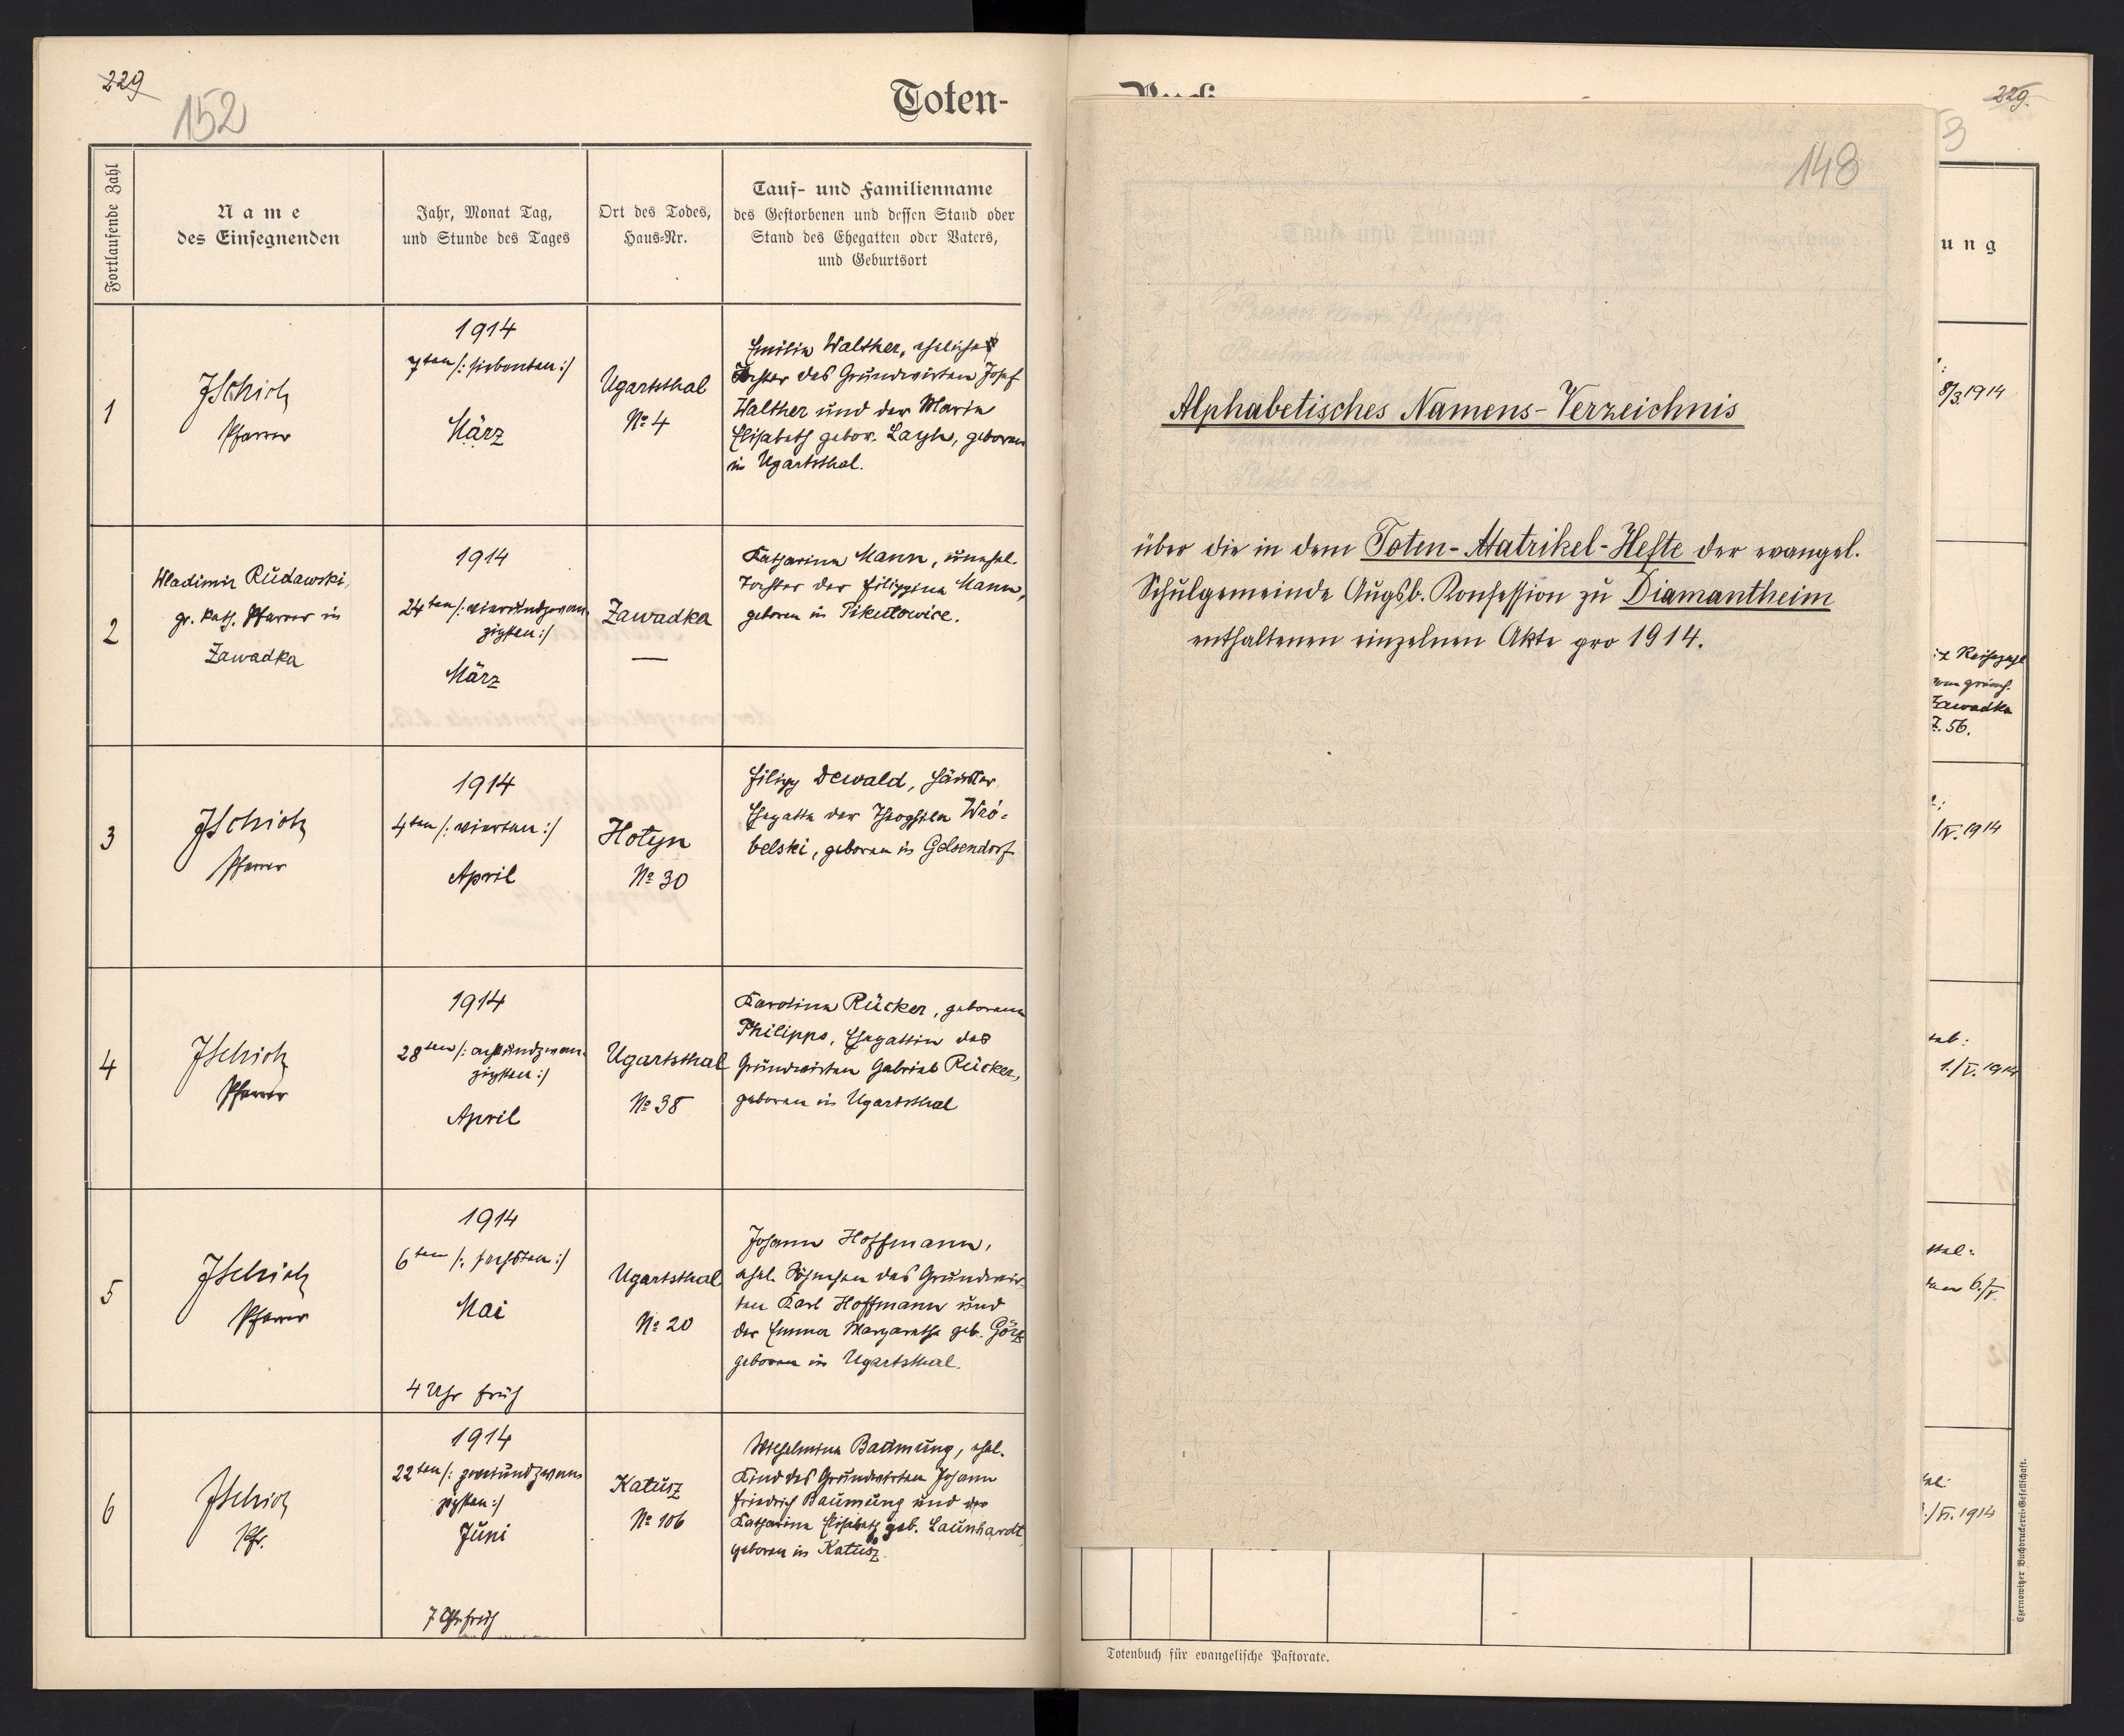 229
152
Toten-
Fortlaufende Zahl
Name
des Einsegnenden
Jahr, Monat Tag,
und Stunde des Tages
Ort des Todes,
Haus-Nr.
Tauf- und Familienname
des Gestorbenen und dessen Stand oder
Stand des Ehegatten oder Vaters,
und Geburtsort
1
Pfarrer
1914
7ten /: siebenten :/
März
Ugartsthal
№ 4
Emilie Walther, eheliche
Tochter des Grundwirten Josef
Walther und der Maria
Elisabeth gebor. Layh, geboren
in Ugartsthal.
2
Wladimir Rudawski,
gr. kath. Pfarrer in
Zawadka
1914
24ten /: vierundzwan-
zigsten :/
März
Zawadka
—
Katharina Mann, unehel.
Tochter der Filippina Mann,
geboren in Pikulowice.
3
Pfarrer
1914
4ten /: vierten :/
April
Hotyn
№ 30
Filipp Dewald, Häusler,
Ehegatte der Theophila Wró-
belski, geboren in Gelsendorf
4
Pfarrer
1914
28ten /: achtundzwan-
zigsten :/
April
Ugartsthal
№ 38
Karolina Rücker, geborene
Philipps, Ehegattin des
Grundwirten Gabriel Rücker,
geboren in Ugartsthal
5
Pfarrer
1914
6ten /: sechsten :/
Mai
4 Uhr früh
Ugartsthal
№ 20
Johann Hoffmann,
ehel. Söhnchen des Grundwir-
ten Karl Hoffmann und
der Emma Margaretha geb. Görz
geboren in Ugartsthal.
6
Pfr.
1914
22ten /: zweiundzwan-
zigsten :/
Juni
7 Uhr früh
Katusz
№ 106
Wilhelmina Baumung, ehel.
Kind des Grundwirten Johann
Friedrich Baumung und der
Katharina Elisabeth geb. Launhardt
geboren in Katusz
229.
3
148
Alphabetisches Namens-Verzeichnis
über die in dem Toten-Matrikel-Hefte der evangel.
Schulgemeinde Augsb. Konfession zu Diamantheim
enthaltenen einzelnen Akte pro 1914.
ung
8/3.1914
Zawadka
Z. 56.
/IV. 1914
1./V. 1914
6./V.
/VI. 1914
Totenbuch für evangelische Pastorate.
Czernowitzer Buchdruckerei-Gesellschaft.